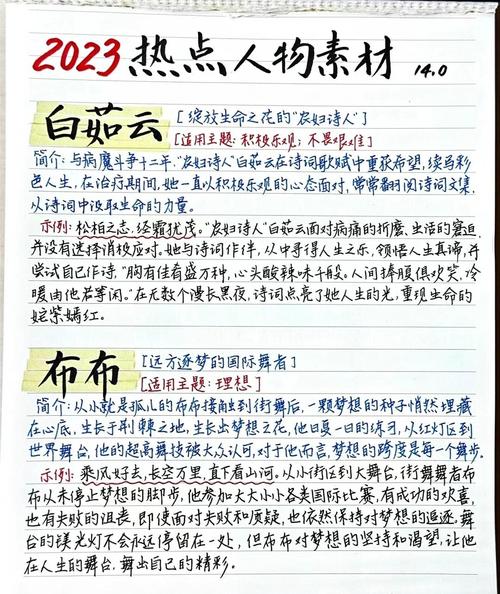 2023 热点人物素材 14.0
白茹云 [绽放生命之花的"农妇诗人"]
[适用主题:积极乐观;不畏艰难]
简介:与病魔斗争十二年,"农妇诗人"白茹云在诗词歌赋中重获希望,续写彩
色人生,在治疗期间,她一直以积极乐观的心态面对,常常翻阅诗词文集,
从诗词中汲取生命的力量。
示例:松柏之志,经霜犹茂。"农妇诗人"白茹云面对病痛的折磨、生活的窘迫,
并没有选择消极应对。她与诗词作伴,从中寻得人生之乐,领悟人生真谛,并
尝试自己作诗,"胸有佳肴盛万种,心头酸辣味千般。人间捧腹俱欢笑,冷
暖由他若等闲。"在无数个漫长黑夜,诗词点亮了她人生的光,重现生命的
姹紫嫣红。
布布 [远方逐梦的国际舞者]
[适用主题:理想]
简介:从小就是孤儿的布布接触到街舞后,一颗梦想的种子悄然埋藏
在心底,生长于荆棘之地,生长出梦想之花,他日复一日的练习,从红灯区到
世界舞台,他的超高舞技被大众认可,对于他而言,梦想的跨度是每一个舞步。
示例:乘风好去,长空万里,直下看山河。从小街区到大舞台,街舞舞者布
布从未停止梦想的脚步,他参加大大小小各类国际比赛,有成功的欢喜,
也有失败的沮丧,即使面对失败和质疑,也依然保持对梦想的追逐。舞
台的镁光灯不会永远停留在一处,但布布对梦想的坚持和渴望,让他
在人生的舞台,舞出自己的精彩。